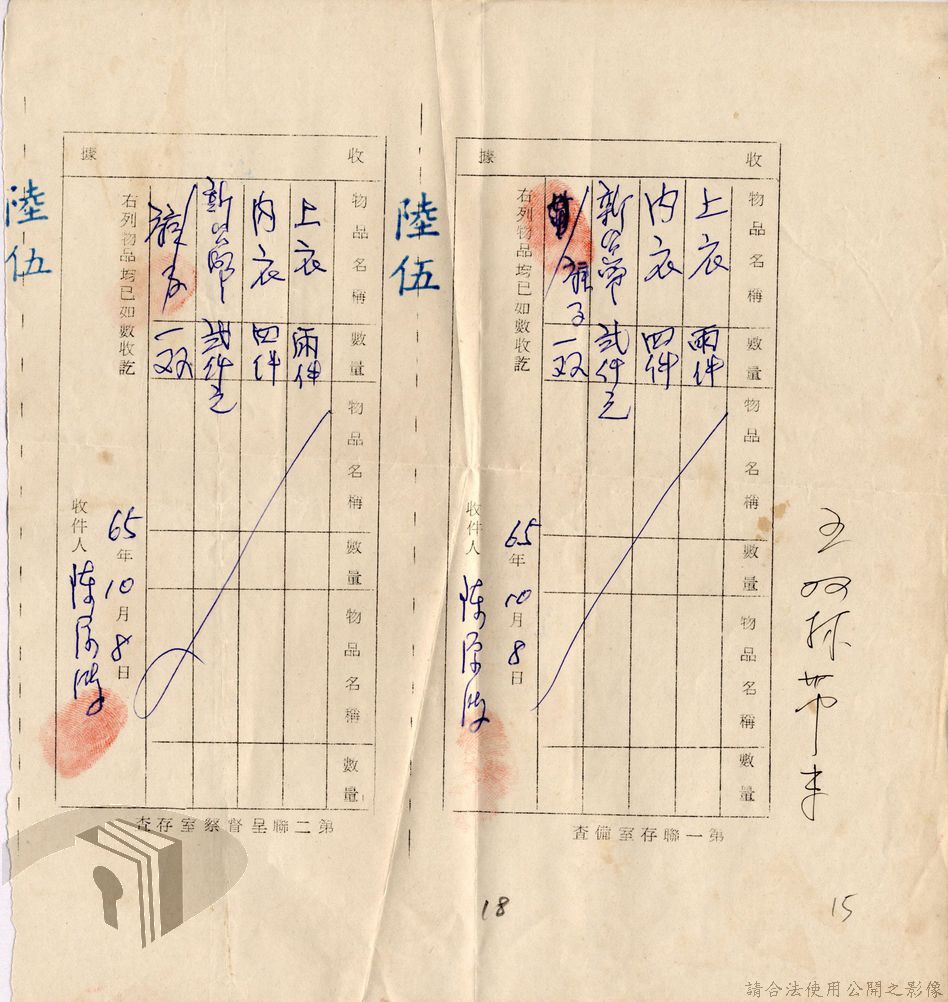 收據
物品名稱 數量 物品名稱 數量 物品名稱 數量
上衣 兩件
內衣 四件
新台幣 弍仟元
襪子 一双
右列物品均已如數收訖
65年10月8日
收件人 陳
第一聯存室備查
陸伍
收據
物品名稱 數量 物品名稱 數量 物品名稱 數量
上衣 兩件
內衣 四件
新台幣 弍仟元
襪子 一双
右列物品均已如數收訖
65年10月8日
收件人 陳
第二聯呈督察室存查
陸伍
18
15
請合法使用公開之影像